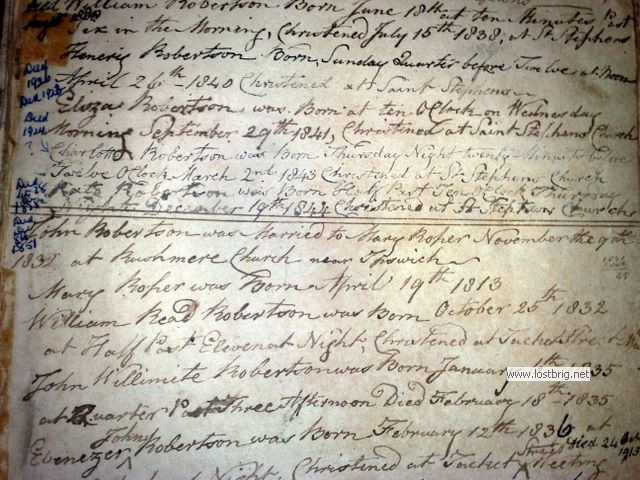 William Robertson Born June 18th at ten Minutes Past
Six in the Morning, Christened July 15th 1838, at St Stephens
Henery Robertson Born, Sunday Quarter before Twelve at Noon
April 26th 1840 Christened at Saint Stephens
Eliza Robertson was Born at ten OClock on Wednesday
Morning September 29th 1841, Christened at Saint Stephens Church
Charlotte Robertson was Born Thursday Night twenty Minuts before
Twelve OClock March 2nd 1843 Christened at St Stephens Church
Kate Robertson was Born Half Past Ten OClock Thursday
Night December 19th 1844 Christened at St Stephens Church
Died
1926
Died 1923
Died
1924
Died
1851
John Robertson was Married to Mary Roper November the 9th
at Rushmere Church near Ipswich
Mary Roper was Born April 19th 1813
William Read Robertson was Born October 25th 1832
at Half Past Eleven at Night, Christened at
John Willimite Robertson was Born January 1835
www.lostbrig.net
at Quarter Past Three Afternoon Died February 18th 1835
John
Ebinezer Robertson was Born February 12th 1836 at
Died 24 Oct
1913
Night, Christened at Tacket Street Meeting